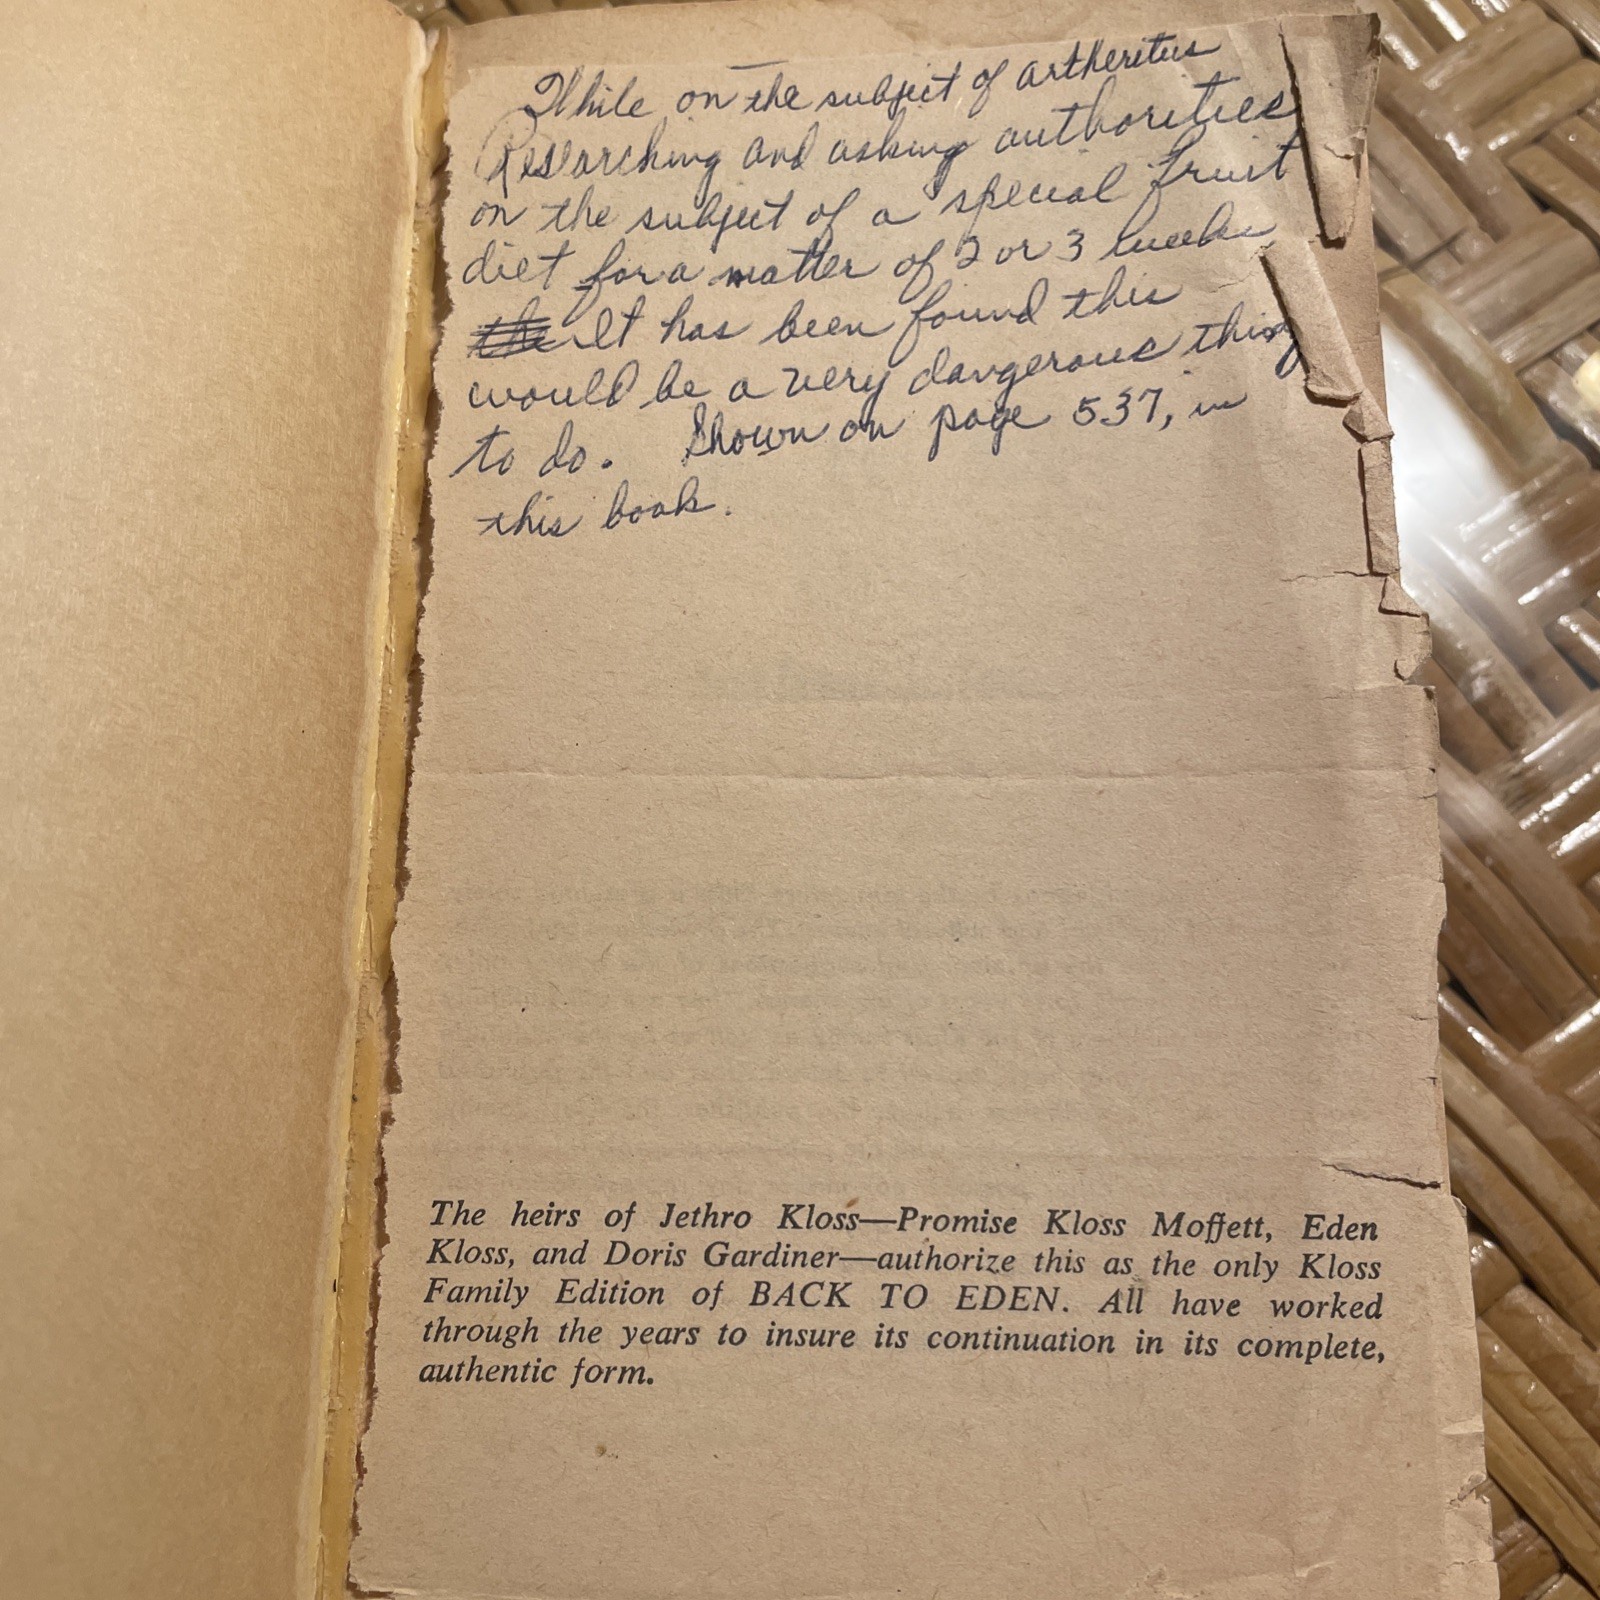 While on the subject of artheritus
Researching and asking authorities
on the subject of a special fruit
diet for a matter of 2 or 3 weeks
the It has been found this
would be a very dangerous thing
to do. Shown on page 537, in
this book.
The heirs of Jethro Kloss—Promise Kloss Moffett, Eden
Kloss, and Doris Gardiner—authorize this as the only Kloss
Family Edition of BACK TO EDEN. All have worked
through the years to insure its continuation in its complete,
authentic form.